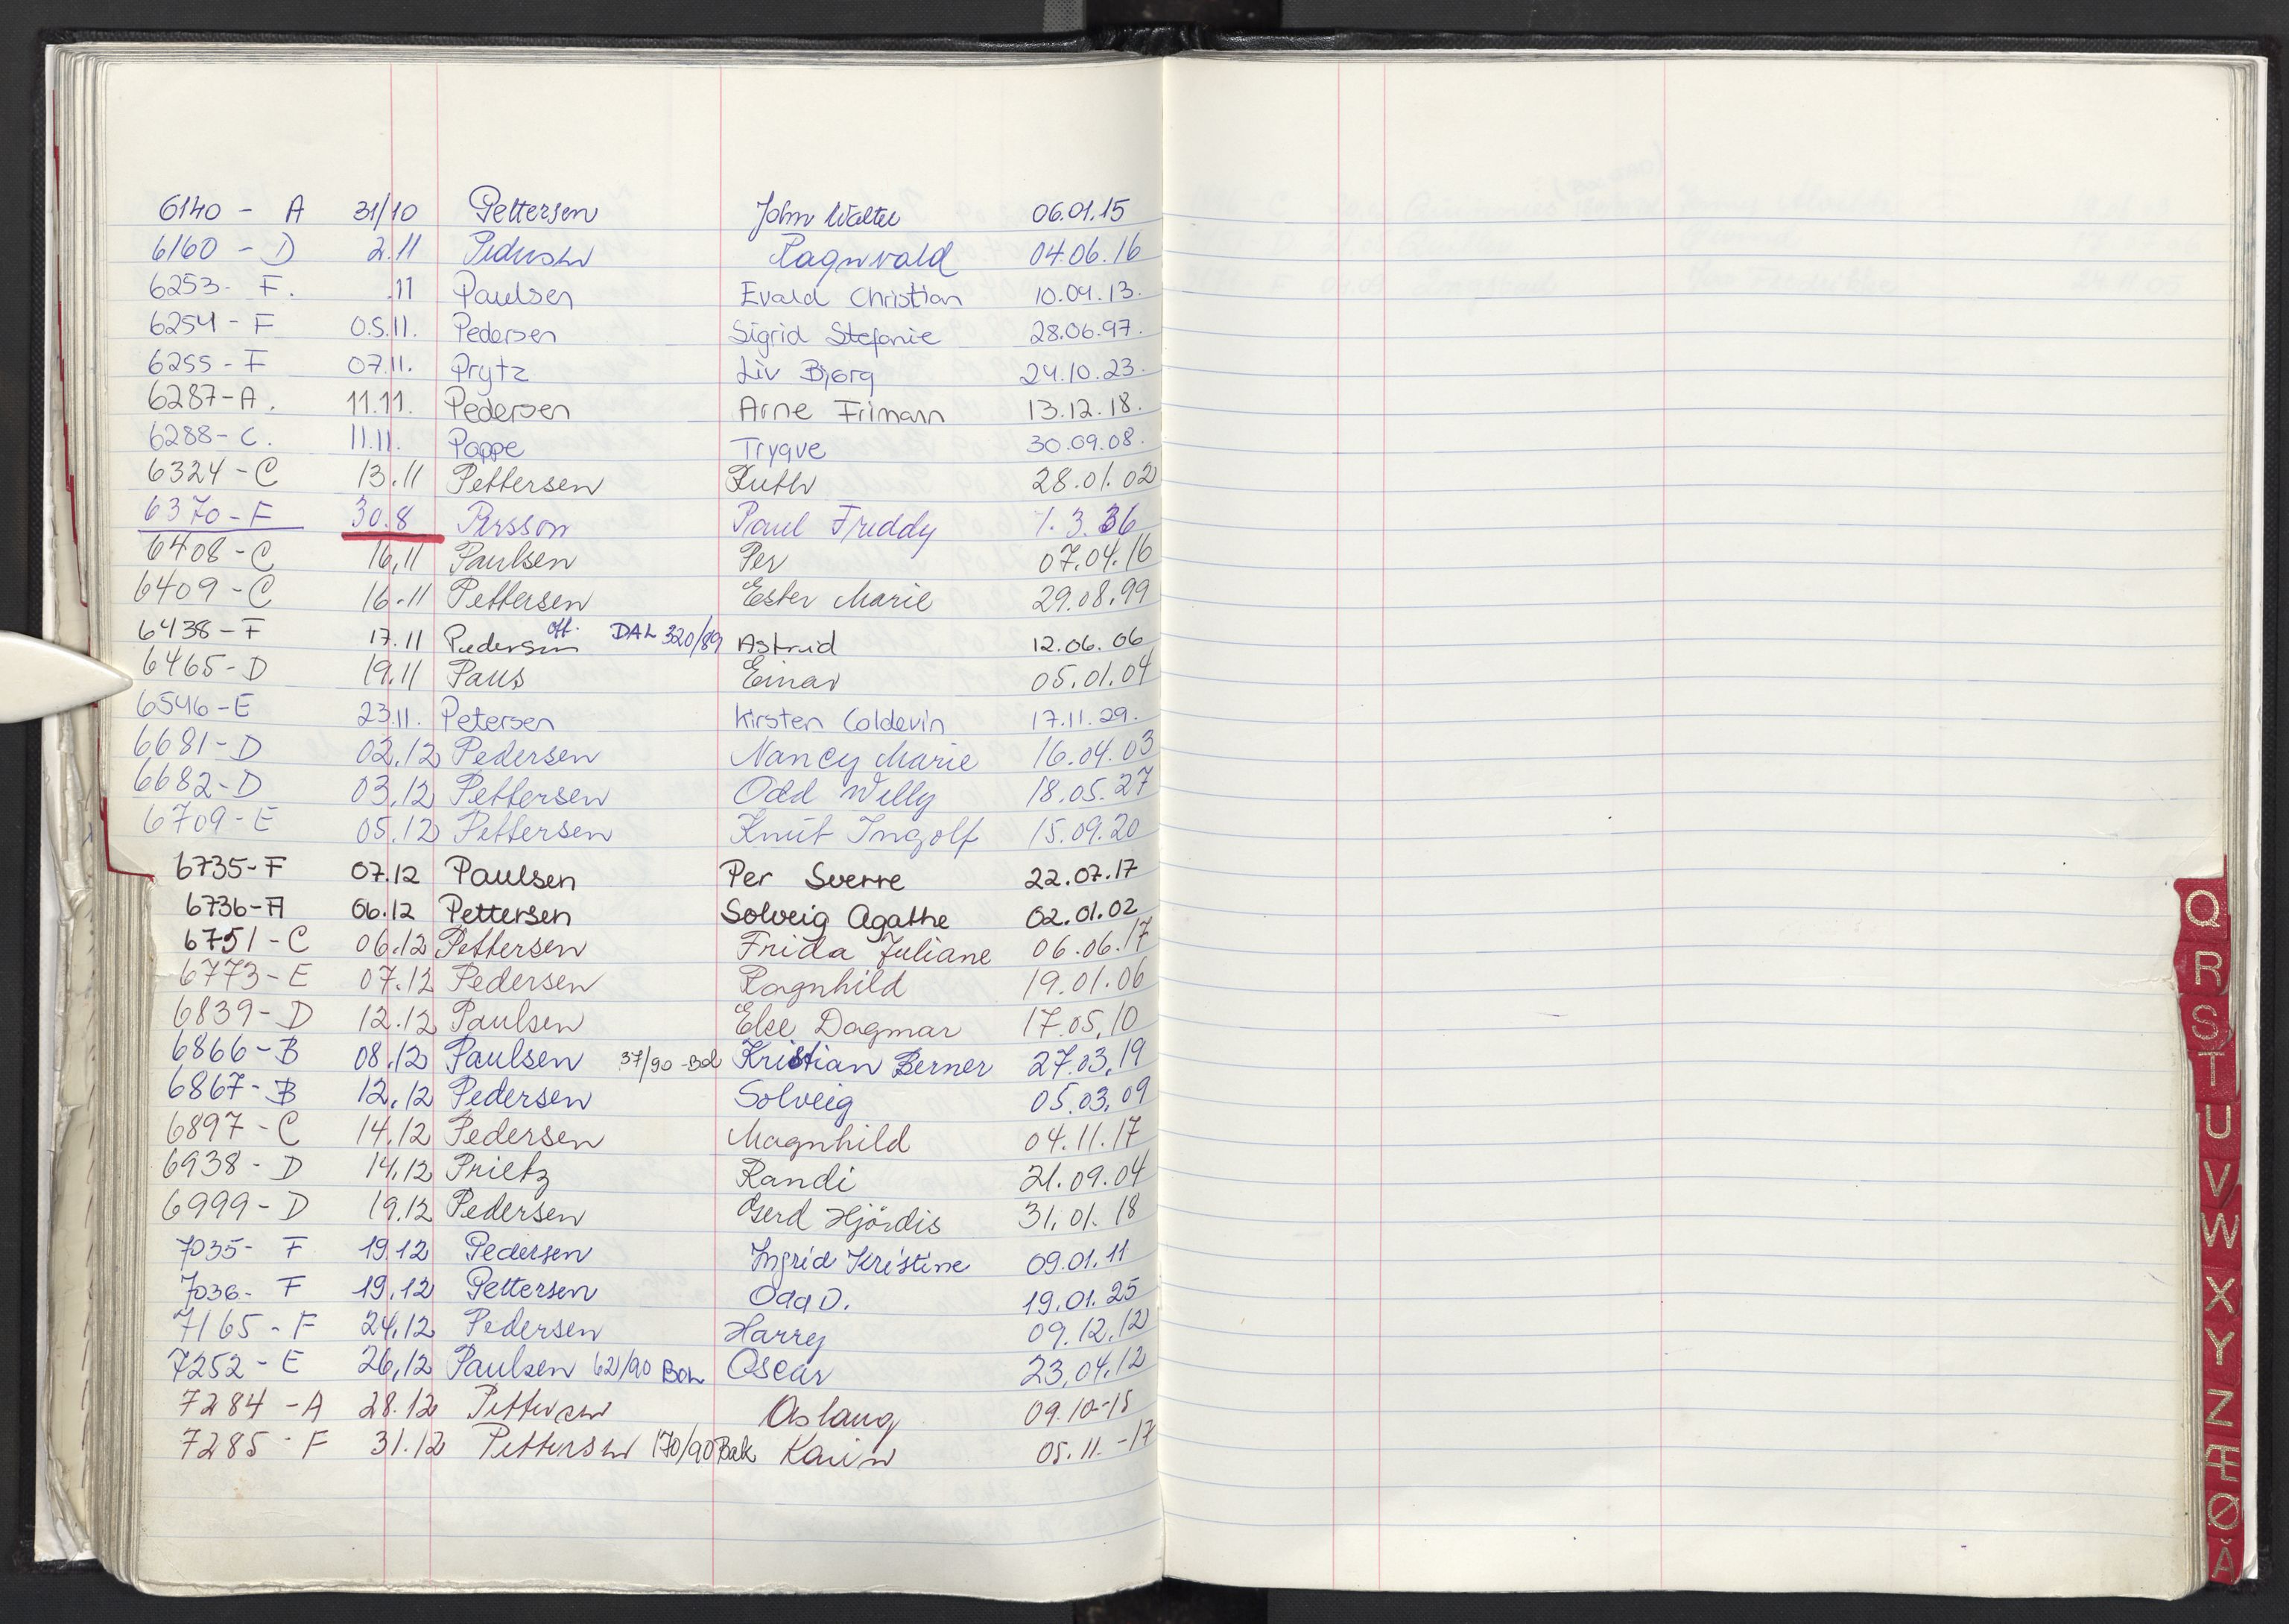 6140 - A 31/10 Pettersen John Walter 06.01.15
6160 - D 2.11 Pedersen Ragnvald 04.06.16
6253- F. .11 Paulsen Evald Christian 10.09.13.
6254 - F 05.11. Pedersen Sigrid Stefanie 28.06.97.
6255 - F 07.11. Prytz Liv Bjørg 24.10.23.
6287-A. 11.11. Pedersen Arne Frimann 13.12.18.
6288- C. 11.11. Poppe Trygve 30.09.08.
6324 - C 13.11 Pettersen Ruth 28.01.02
6370 - F 30.8 Persson Paul Freddy 1.3.36
6408 - C 16.11 Paulsen Per 07.04.16
6409 - C 16.11 Pettersen Ester Marie 29.08.99
6438 - F 17.11 Pedersen off. DAL 320/89 Astrid 12.06.06
6465 - D 19.11 Paus Einar 05.01.04
6546 - E 23.11. Petersen Kirsten Coldevin 17.11.29.
6681 - D 02.12 Pedersen Nancy Marie 16.04.03
6682 - D 03.12 Pettersen Odd Willy 18.05.27
6709 - E 05.12 Pettersen Knut Ingolf 15.09.20
6735-F 07.12 Paulsen Per Sverre 22.07.17
6736-A 06.12 Pettersen Solveig Agathe 02.01.02
6751 - C 06.12 Pettersen Frida Juliane 06.06.17
6773 - E 07.12 Pedersen Ragnhild 19.01.06
6839 - D 12.12 Paulsen Else Dagmar 17.05.10
6866 - B 08.12 Paulsen 37/90 -Bol Kristian Berner 27.03.19
6867 - B 12.12 Pedersen Solveig 05.03.09
6897 - C 14.12 Pedersen Magnhild 04.11.17
6938 - D 14.12 Prietz Randi 21.09.04
6999 - D 19.12 Pedersen Gerd Hjördis 31.01.18
7035- F 19.12 Pedersen Ingrid Kristine 09.01.11
7036- F 19.12 Pettersen Odd D. 19.01.25
7165 - F 24.12 Pedersen Harry 09.12.12
7252 - E 26.12 Paulsen 62/90 BOL Oscar 23.04.12
7284 - A 28.12 Pettersen Aslaug 09.10-15
7285 - F 31.12 Pettersen 170/90 Bak Karin 05.11.-17
Q
R
S
T
U
V
W
X
Y
Z
Æ
Ø
Å